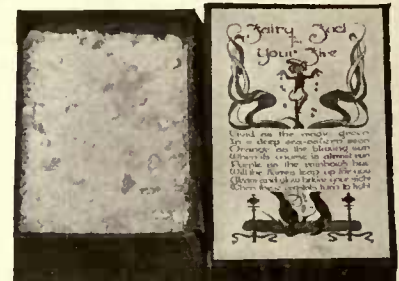 Fairy Fuel
for
Your Fire
Vivid as the magic green
In a deep sea-cavern seen
Orange as the blazing sun
When its course is almost run
Purple as the rainbow's hue
Will the flames leap up for you
and glow before your sight
When these crystals turn to light